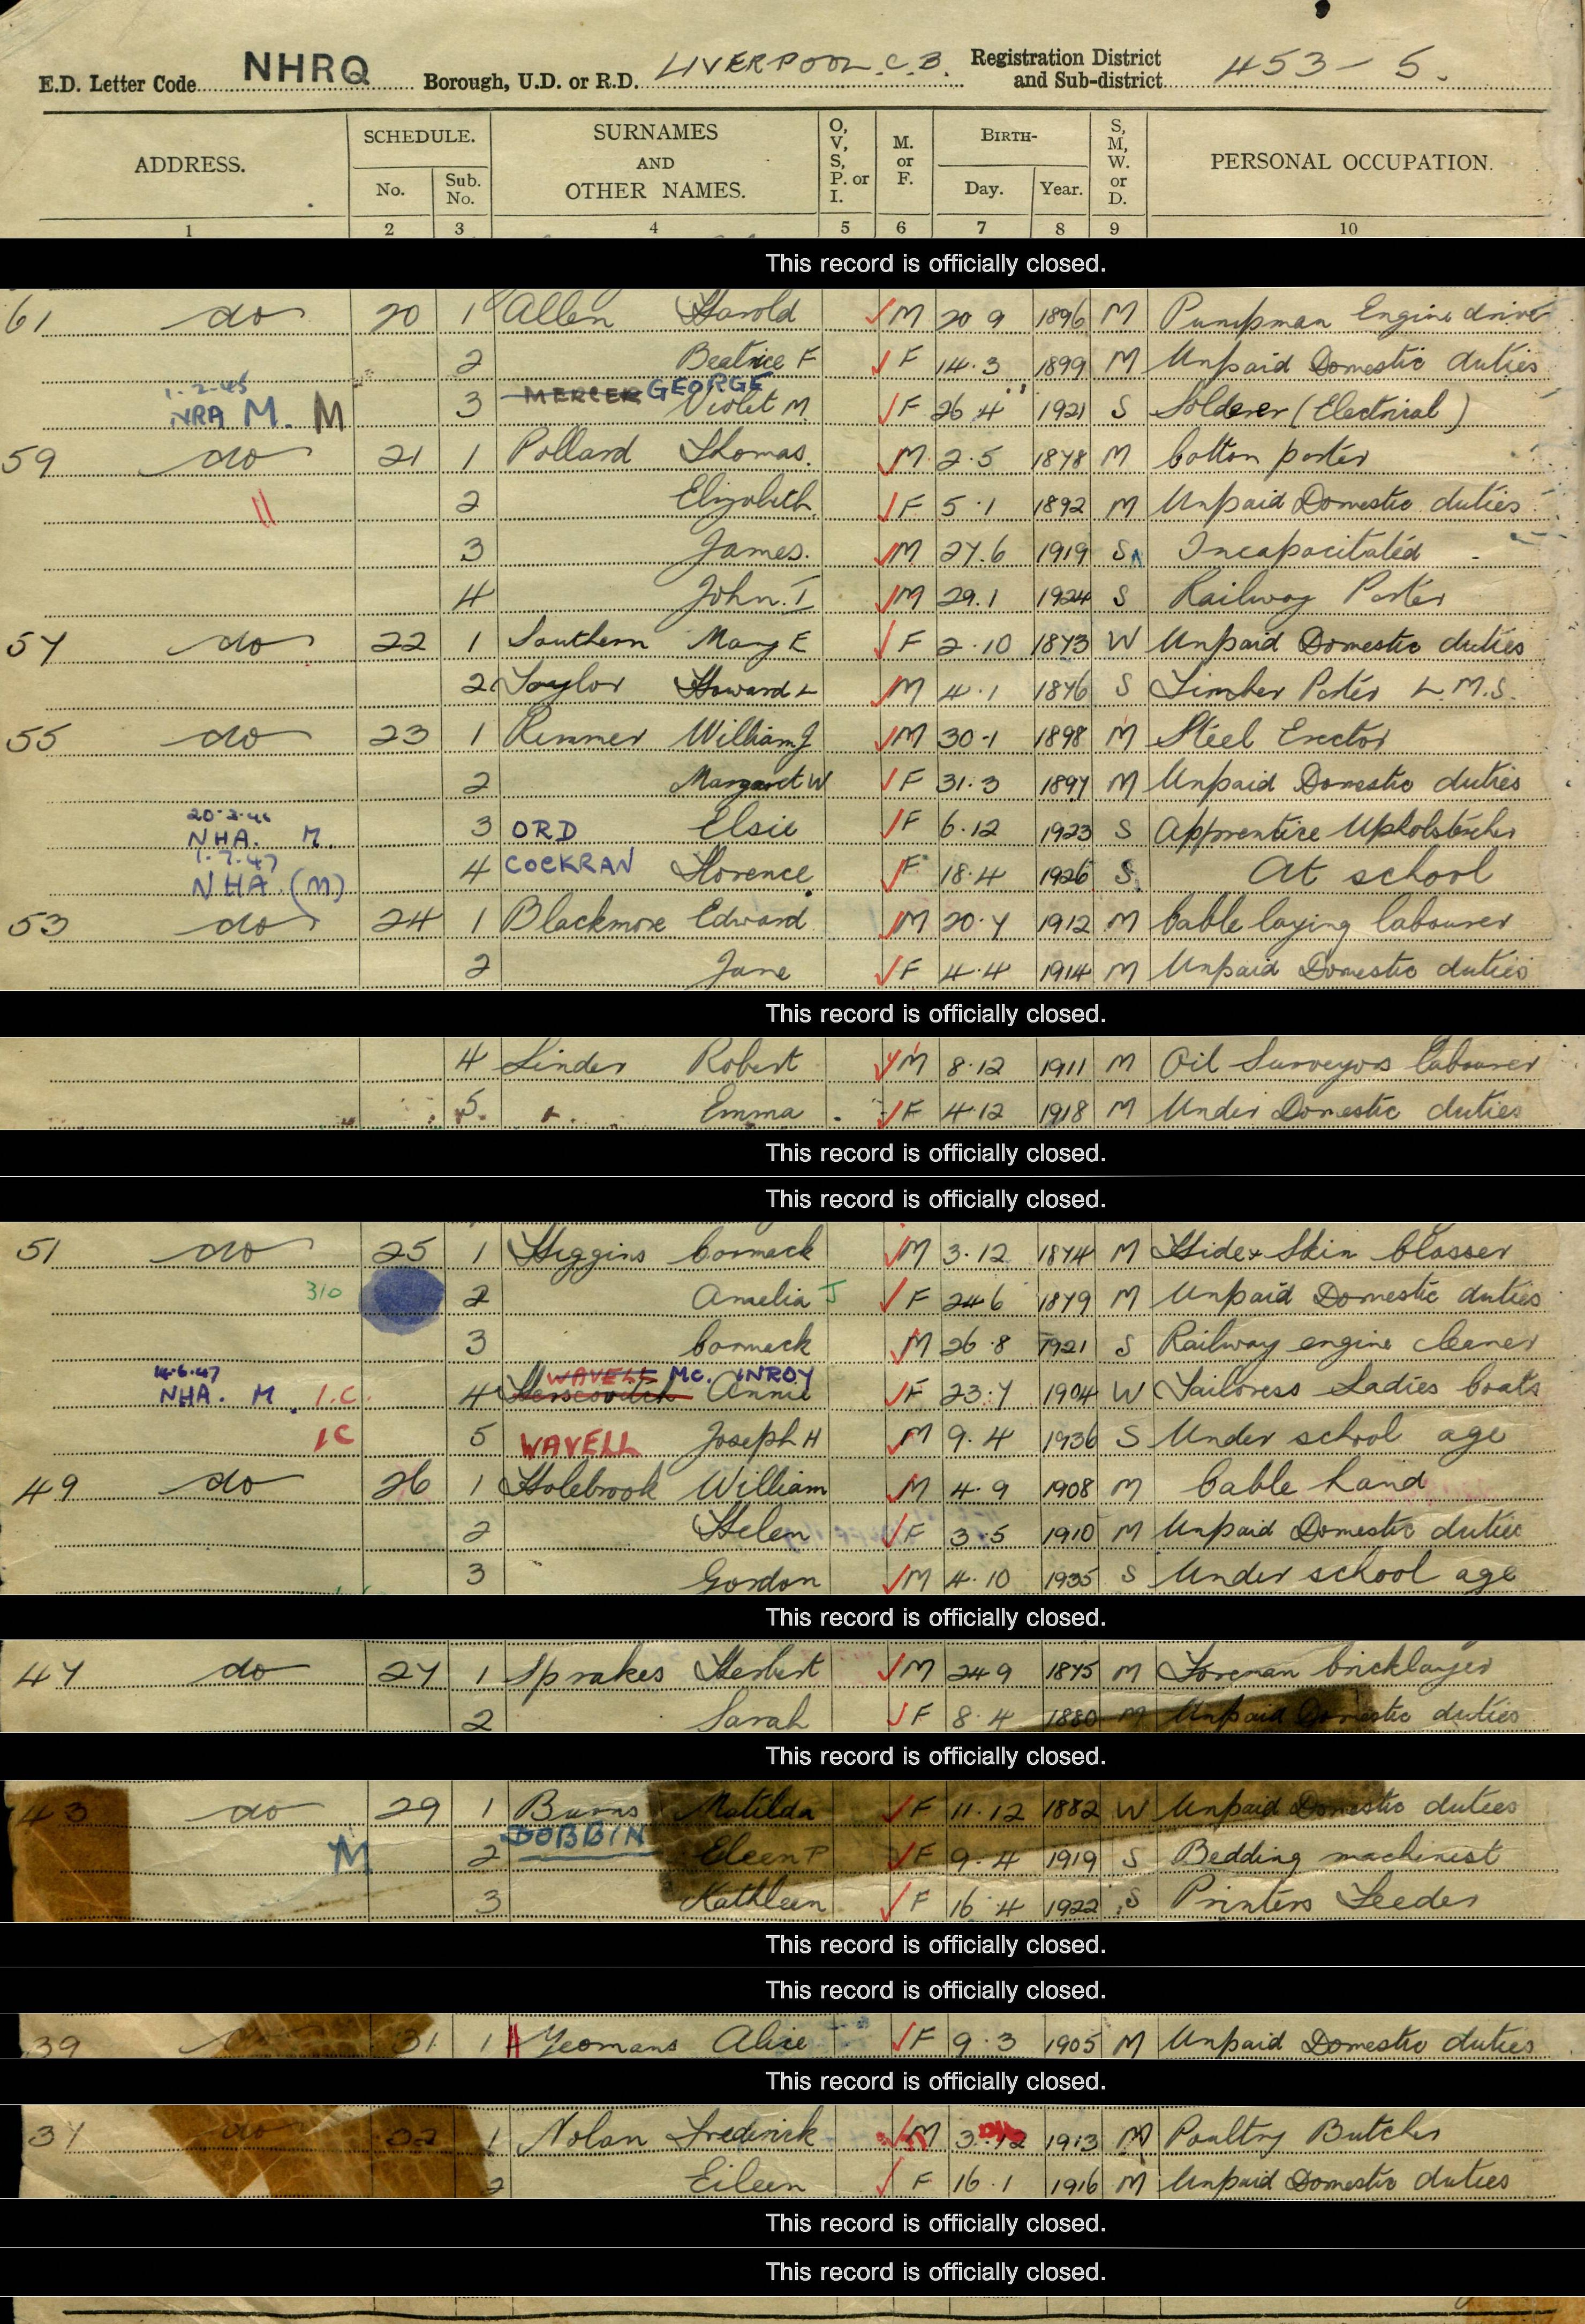 E.D. Letter Code NHRQ Borough, U.D. or R.D. LIVERPOOL C.B. Registration District and Sub-district 453-5.
ADDRESS. SCHEDULE. No. Sub. No. SURNAMES AND OTHER NAMES. O, V, S, P. or I. M. or F. BIRTH- Day. Year. S, M, W. or D. PERSONAL OCCUPATION.
1 2 3 4 5 6 7 8 9 10
This record is officially closed.
61 do 20 1 Allen Harold M 20 9 1896 M Pumpman Engine driver
2 Beatrice F F 14.3 1899 M Unpaid Domestic duties
1.2.45 MERCER GEORGE
NRA M. M 3 Violet M F 26 4 1921 S Solderer (Electrical)
59 do 21 1 Pollard Thomas. M 2.5 1878 M Cotton porter
2 Elizabeth F 5.1 1892 M Unpaid Domestic duties
3 James. M 27.6 1919 S Incapacitated
4 John. T M 29.1 1924 S Railway Porter
57 do 22 1 Southern Mary E F 2.10 1873 W Unpaid Domestic duties
2 Taylor Howard L M 4.1 1876 S Timber Porter L.M.S.
55 do 23 1 Rimmer William J M 30.1 1898 M Steel Erector
2 Margaret W F 31.3 1897 M Unpaid Domestic duties
20.3.46
NHA. M. 3 ORD Elsie F 6.12 1923 S Apprentice Upholsterer
1.7.47
NHA (M) 4 COCKRAN Florence F 18.4 1926 S At school
53 do 24 1 Blackmore Edward M 20.7 1912 M Cable laying labourer
2 Jane F 4.4 1914 M Unpaid Domestic duties
This record is officially closed.
4 Linder Robert M 8.12 1911 M Oil Surveyors labourer
5 Emma F 4.12 1918 M Under Domestic duties
This record is officially closed.
This record is officially closed.
51 do 25 1 Higgins Cormack M 3.12 1874 M Hide & Skin Classer
310 2 Amelia J F 24 6 1879 M Unpaid Domestic duties
3 Cormack M 26.8 1921 S Railway engine cleaner
14.6.47 WAVELL MC. INROY
NHA. M. I.C. 4 Herscovitch Annie F 23.7 1904 W Tailoress Ladies Coats
IC 5 WAVELL Joseph H M 9.4 1936 S Under school age
49 do 26 1 Holebrook William M 4.9 1908 M Cable hand
2 Helen F 3.5 1910 M Unpaid Domestic duties
3 Gordon M 4.10 1935 S Under school age
This record is officially closed.
47 do 27 1 Sprakes Herbert M 24 9 1875 M Foreman bricklayer
2 Sarah F 8.4 1880 M Unpaid Domestic duties
This record is officially closed.
43 do 29 1 Burns Matilda F 11.12 1882 W Unpaid Domestic duties
M 2 DOBBIN Eleen P F 9.4 1919 S Bedding machinist
3 Kathleen F 16.4 1922 S Printers Feeder
This record is officially closed.
This record is officially closed.
39 do 31 1 Yeomans Alice F 9.3 1905 M Unpaid Domestic duties
This record is officially closed.
37 do 32 1 Nolan Frederick M 3.12 1913 M Poultry Butcher
2 Eileen F 16.1 1916 M Unpaid Domestic duties
This record is officially closed.
This record is officially closed.